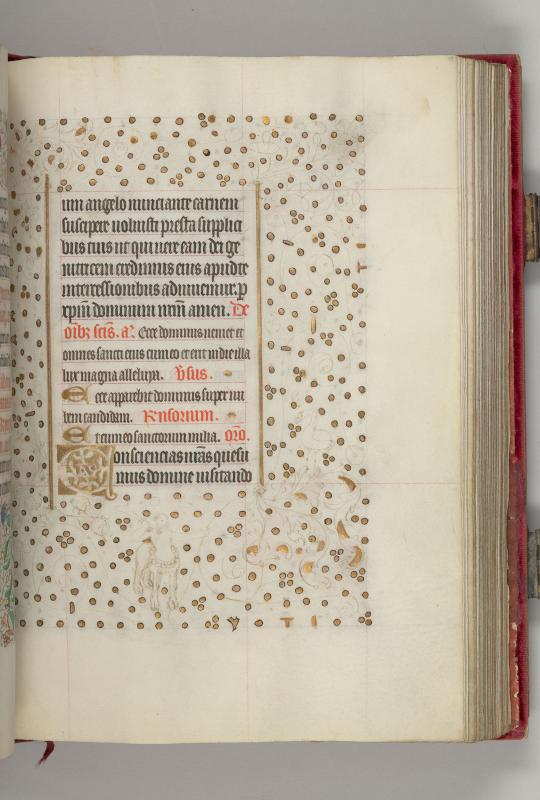 um angelo nunciante carnem
suscipere uoluisti presta supplici
bus tuis ut qui uere eam dei ge
nitricem credimus eius apud te
intercessionibus adiuuemur. p
xp̄m dominum nr̄m amen. De
oib3 scīs. aꝰ. Ecce dominus ueniet et
omnes sancti eius cum eo et erit in die illa
lux magna alleluya. V̄sus.
Ecce apparebit dominus super nu
bem candidam. Rn̄sorium.
Et cum eo sanctorum milia. Or̄o.
Consciencias nr̄as quesu
mus domine uisitando